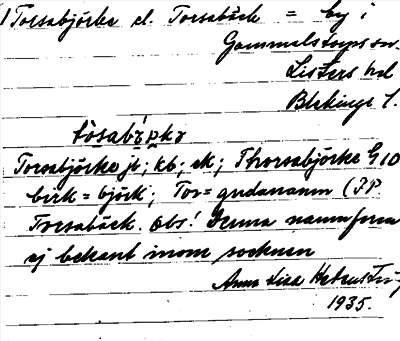 1 Torsabjörke el. Torsabäck = by i
Gammalstorps sn.
Listers hd
Blekinge l.
tòsabʼrpkr
Torsabjörke jb; kb; ek; Thorsabjörke G 10
birk = björk; Tor = gudanamn (J.P.
Torsabäck. Obs! Denna namnform
ej bekant inom socknen
Anna Lisa
1935.